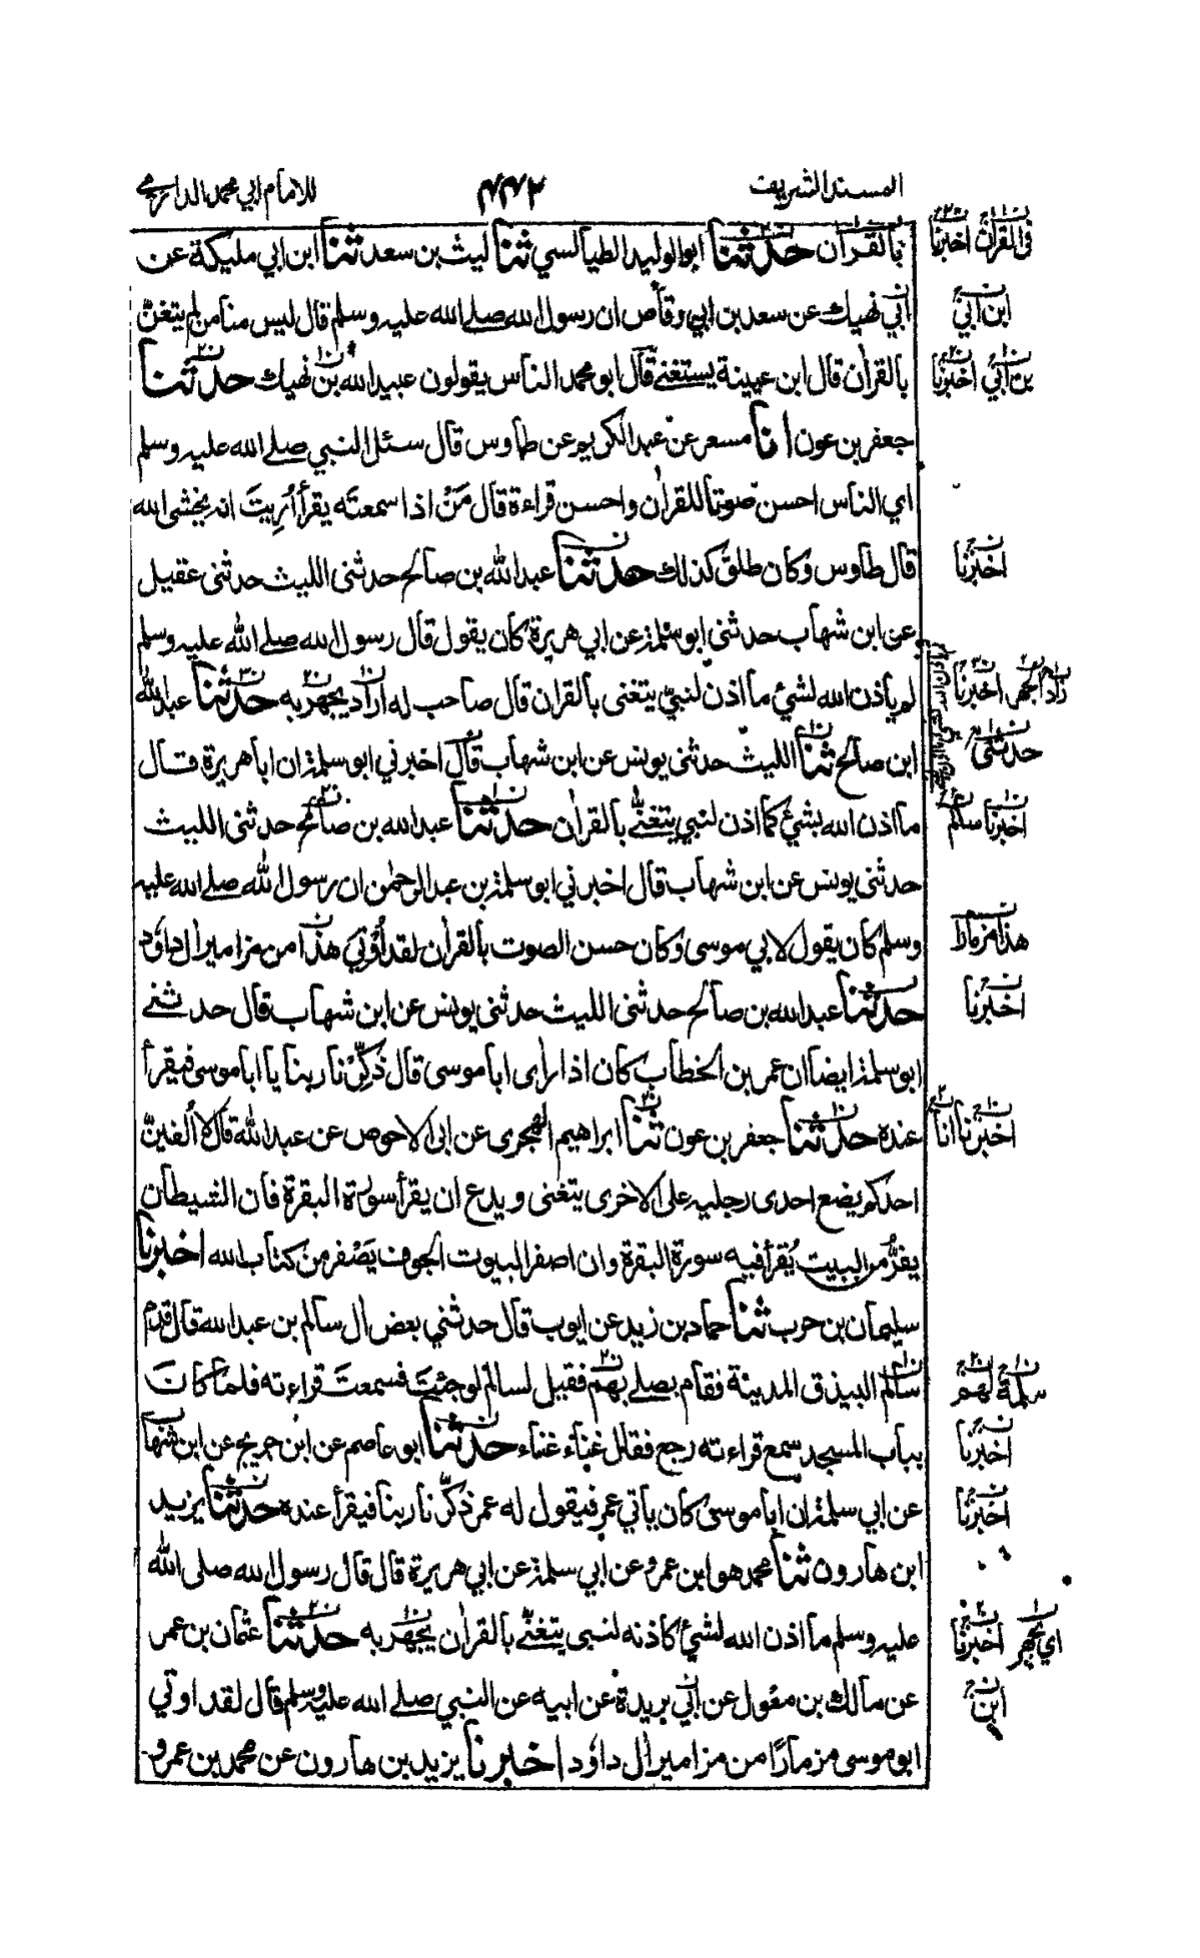 المسند الشريف ٤٤٢ للامام ابي محمد الدارمي
بالقران حدثنا ابو الوليد الطيالسي ثنا ليث بن سعد ثنا ابن ابي مليكة عن
ابي نهيك عن سعد بن ابي وقاص ان رسول الله صلے الله عليه وسلم قال ليس منا من لم يتغنّ
بالقرأن قال ابن عيينة يستغنے قال ابو محمد الناس يقولون عبيد الله بن نهيك حدثنا
جعفر بن عون انا مسعر عن عبد الكريم عن طاوس قال سئل النبي صلے الله عليه وسلم
اي الناس احسن صوتا للقرأن واحسن قراءة قال مَنْ اذا سمعته يقرأ اُرِيتَ انه يخشى الله
قال طاوس وكان طلق كذلك حدثنا عبد الله بن صالح حدثنى الليث حدثنى عقيل
عن ابن شهاب حدثنى ابو سلمة عن ابي هريرة كان يقول قال رسول الله صلے الله عليه وسلم
لم يأذن الله لشيء ما اذن لنبيّ يتغنى بالقران قال صاحب له اراد يجهر به حدثنا عبد الله
ابن صالح ثنا الليث حدثنى يونس عن ابن شهاب قال اخبرني ابو سلمة ان ابا هريرة قال
ما اذن الله بشيء كما اذن لنبي يتغنّے بالقرأن حدثنا عبد الله بن صالح حدثنى الليث
حدثنى يونس عن ابن شهاب قال اخبرني ابو سلمة بن عبد الرحمٰن ان رسول الله صلے الله عليه
وسلم كان يقول لابي موسى وكان حسن الصوت بالقرأن لقد أُوْتِيَ هذا من مزامير اٰل داوٗد
حدثنا عبد الله بن صالح حدثنى الليث حدثنى يونس عن ابن شهاب قال حدثنے
ابو سلمة ايضا ان عمر بن الخطاب كان اذا رأى ابا موسى قال ذَكِّرْنا ربنا يا ابا موسى فيقرأ
عنده حدثنا جعفر بن عون ثنا ابراهيم الهجرى عن ابى الاحوص عن عبد الله قال لا اُلفينّ
احدكم يضع احدى رجليه على الاخرى يتغنى ويدع ان يقرأ سورة البقرة فان الشيطان
يفرُّ من البيت يُقرأ فيه سورة البقرة وان اصفر البيوت الجوف يَصْفر من كتاب الله اخبرنا
سليمان بن حرب ثنا حماد بن زيد عن ايوب قال حدثني بعض اٰل سالم بن عبد الله قال قدم
سالم البيذق المدينة فقام يصلے بهم فقيل لسالم لو جئتَ فسمعتَ قراءته فلما كان
بباب المسجد سمع قراءته رجع فقال غناء غناء حدثنا ابو عاصم عن ابن جريج عن ابن شهاب
عن ابي سلمة ان ابا موسى كان يأتي عمر فيقول له عمر ذكّرنا ربنا فيقرأ عنده حدثنا يزيد
ابن هارون ثنا محمد هو ابن عمرو عن ابي سلمة عن ابي هريرة قال قال رسول الله صلى الله
عليه وسلم ما اذن الله لشيء كاذنه لنبى يتغنّے بالقرأن يجهر به حدثنا عثمان بن عمر
عن مالك بن مغول عن ابي بريدة عن ابيه عن النبي صلے الله عليه وسلم قال لقد اوتي
ابو موسى مزمارًا من مزامير اٰل داوٗد اخبرنا يزيد بن هارون عن محمد بن عمرو
فى القرأن اخبرنا
ابن ابي
بن ابي اخبرنا
اخبرنا
زاد الجهر اخبرنا
حدثنى
اخبرنا سلم
هذا مزمارا
اخبرنا
اخبرنا انا
سلمة لهم
اخبرنا
اخبرنا
اي يجهر اخبرنا
ابن